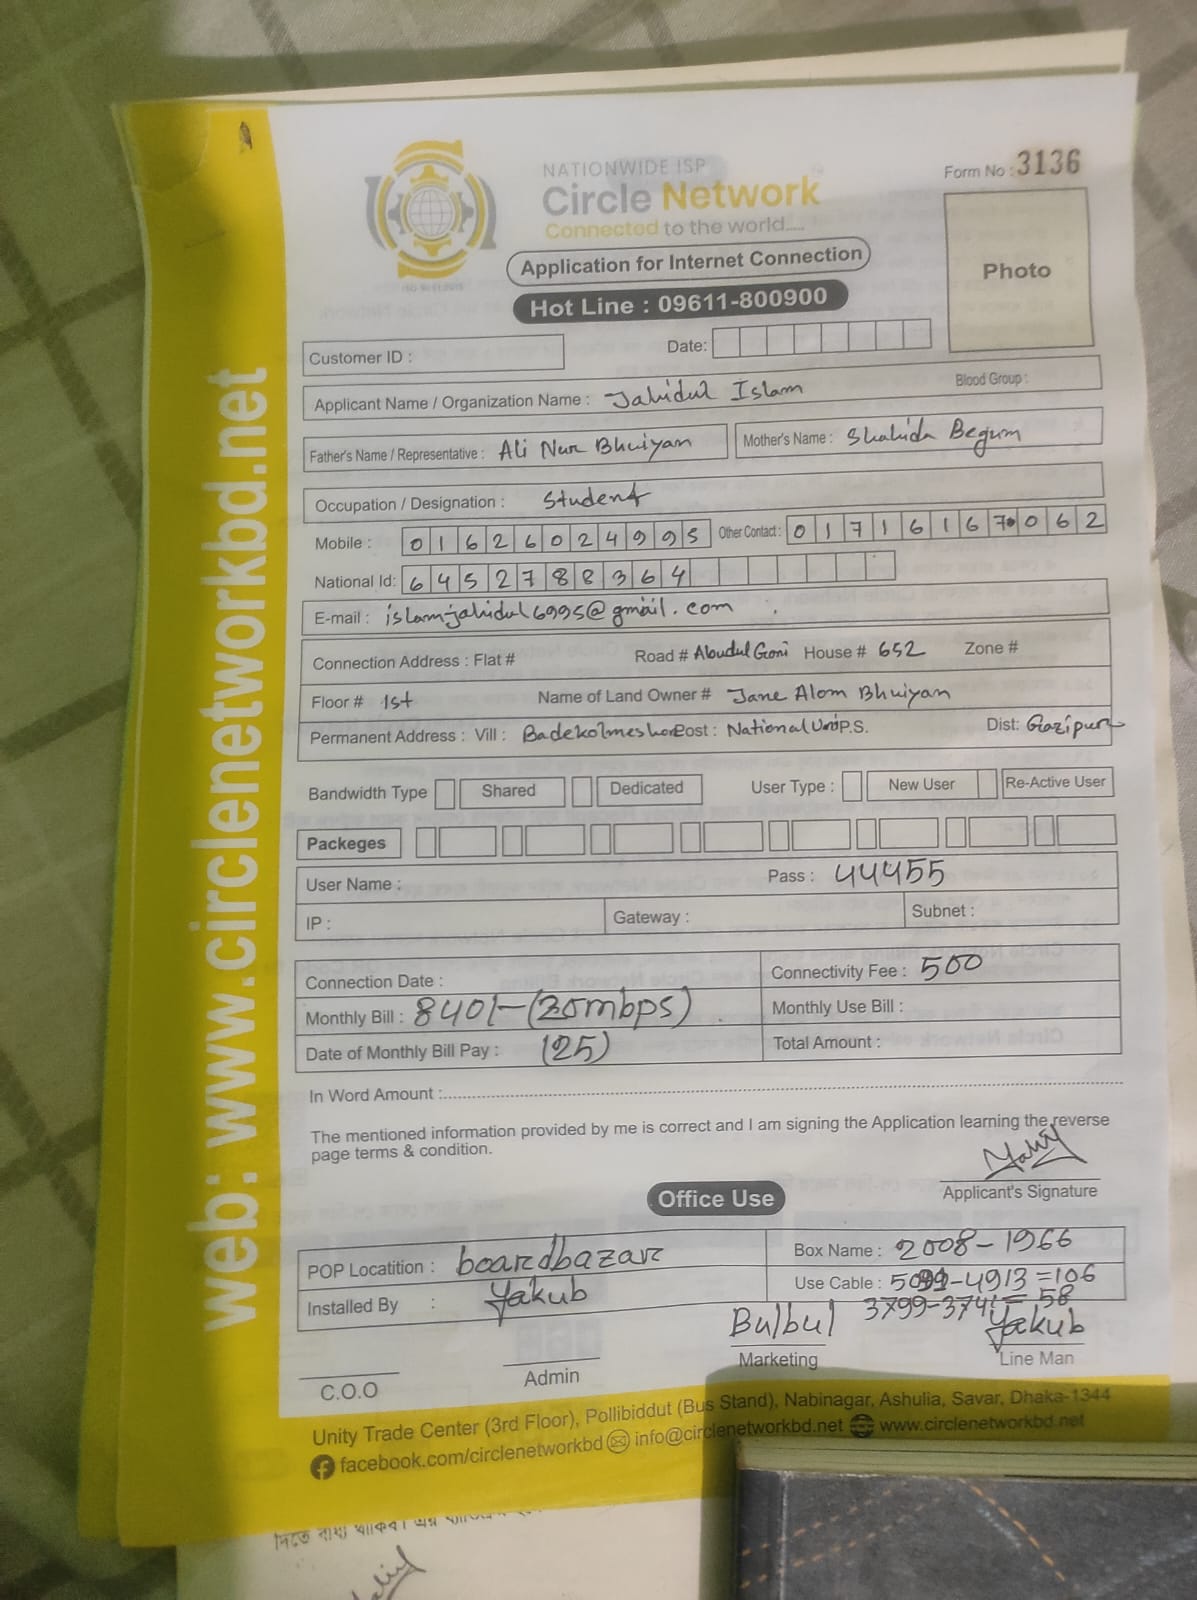 NATIONWIDE ISP
Circle Network
Connected to the world.....
Form No : 3136
Photo
Application for Internet Connection
Hot Line : 09611-800900
Customer ID :
Date:
Applicant Name / Organization Name : Jahidul Islam Blood Group :
Father's Name / Representative : Ali Nur Bhuiyan Mother's Name : Shahida Begum
Occupation / Designation : Student
Mobile : 01626024995 Other Contact : 01716167062
National Id: 6452788364
E-mail : islamjahidul6995@gmail.com
Connection Address : Flat # Road # Abudul Goni House # 652 Zone #
Floor # 1st Name of Land Owner # Jane Alom Bhuiyan
Permanent Address : Vill : Badekolmeshore Post : National Uni P.S. Dist: Gazipur
Bandwidth Type Shared Dedicated User Type : New User Re-Active User
Packeges
User Name : Pass : 44455
IP : Gateway : Subnet :
Connection Date : Connectivity Fee : 500
Monthly Bill : 840/- (30mbps) Monthly Use Bill :
Date of Monthly Bill Pay : (25) Total Amount :
In Word Amount :
The mentioned information provided by me is correct and I am signing the Application learning the reverse
page terms & condition.
Applicant's Signature
Office Use
POP Locatition : boardbazar Box Name : 2008-1966
Installed By : Yakub Use Cable : -4913 =106
3799-3741= 58
Bulbul Yakub
C.O.O Admin Marketing Line Man
Unity Trade Center (3rd Floor), Pollibiddut (Bus Stand), Nabinagar, Ashulia, Savar, Dhaka-1344
facebook.com/circlenetworkbd info@circlenetworkbd.net www.circlenetworkbd.net
web: www.circlenetworkbd.net